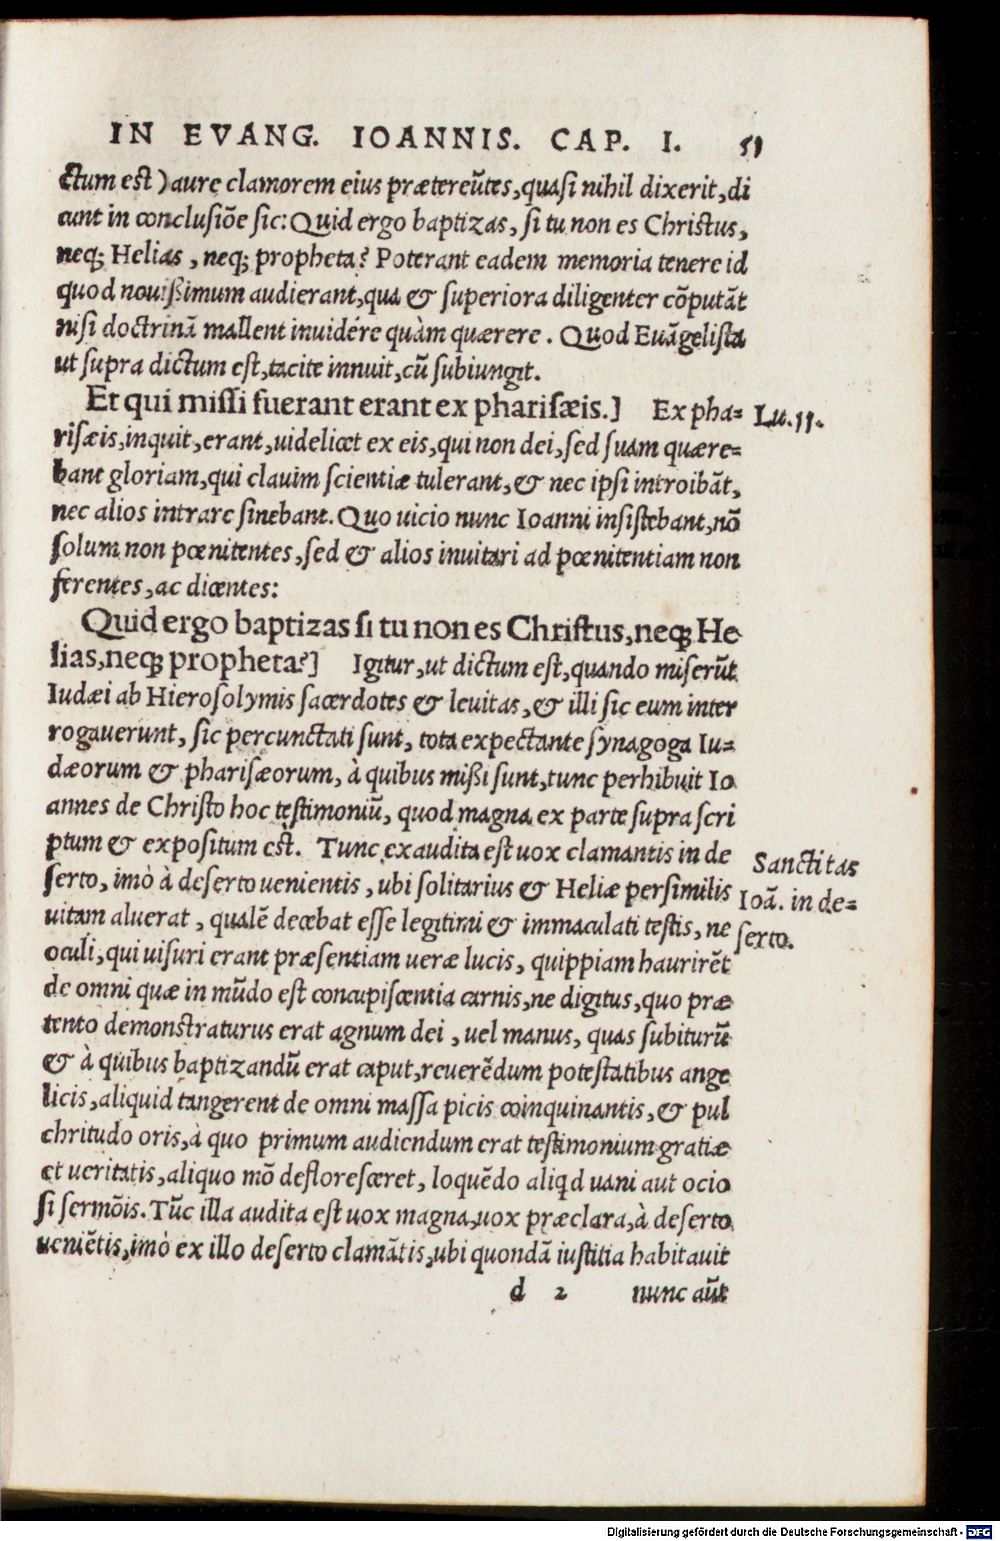 IN EVANG. IOANNIS. CAP. I. 51
ctum est) aure clamorem eius prætereũtes, quasi nihil dixerit, di
cunt in conclusiõe sic: Quid ergo baptizas, si tu non es Christus,
neq; Helias, neq; propheta? Poterant eadem memoria tenere id
quod nouißimum audierant, qua & superiora diligenter cõputãt
nisi doctrinã mallent inuidére quàm quærere. Quod Euãgelista
ut supra dictum est, tacite innuit, cũ subiungit.
Et qui missi fuerant erant ex pharisæis.] Ex pha=
Lu. 11.
risæis, inquit, erant, uidelicet ex eis, qui non dei, sed suam quære=
bant gloriam, qui clauim scientiæ tulerant, & nec ipsi introibãt,
nec alios intrare sinebant. Quo uicio nunc Ioanni insistebant, nõ
solum non pœnitentes, sed & alios inuitari ad pœnitentiam non
ferentes, ac dicentes:
Quid ergo baptizas si tu non es Christus, neq; He
lias, neq; propheta?] Igitur, ut dictum est, quando miserũt
Iudæi ab Hierosolymis sacerdotes & leuitas, & illi sic eum inter
rogauerunt, sic percunctati sunt, tota expectante synagoga Iu=
dæorum & pharisæorum, à quibus mißi sunt, tunc perhibuit Io
annes de Christo hoc testimoniũ, quod magna ex parte supra scri
ptum & expositum est. Tunc exaudita est uox clamantis in de
serto, imò à deserto uenientis, ubi solitarius & Heliæ persimilis
uitam aluerat, qualẽ decebat esse legitimi & immaculati testis, ne
Sanctitas
Ioã. in de=
serto.
oculi, qui uisuri erant præsentiam ueræ lucis, quippiam haurirẽt
de omni quæ in mũdo est concupiscentia carnis, ne digitus, quo præ
tento demonstraturus erat agnum dei, uel manus, quas subiturũ
& à quibus baptizandũ erat caput, reuerẽdum potestatibus ange
licis, aliquid tangerent de omni massa picis coinquinantis, & pul
chritudo oris, à quo primum audiendum erat testimonium gratiæ
et ueritatis, aliquo mõ defloresceret, loquẽdo aliqd uani aut ocio
si sermõis. Tũc illa audita est uox magna, uox præclara, à deserto
ueniẽtis, imò ex illo deserto clamãtis, ubi quondã iustitia habitauit
d 2 nunc aũt
Digitalisierung gefördert durch die Deutsche Forschungsgemeinschaft - DFG